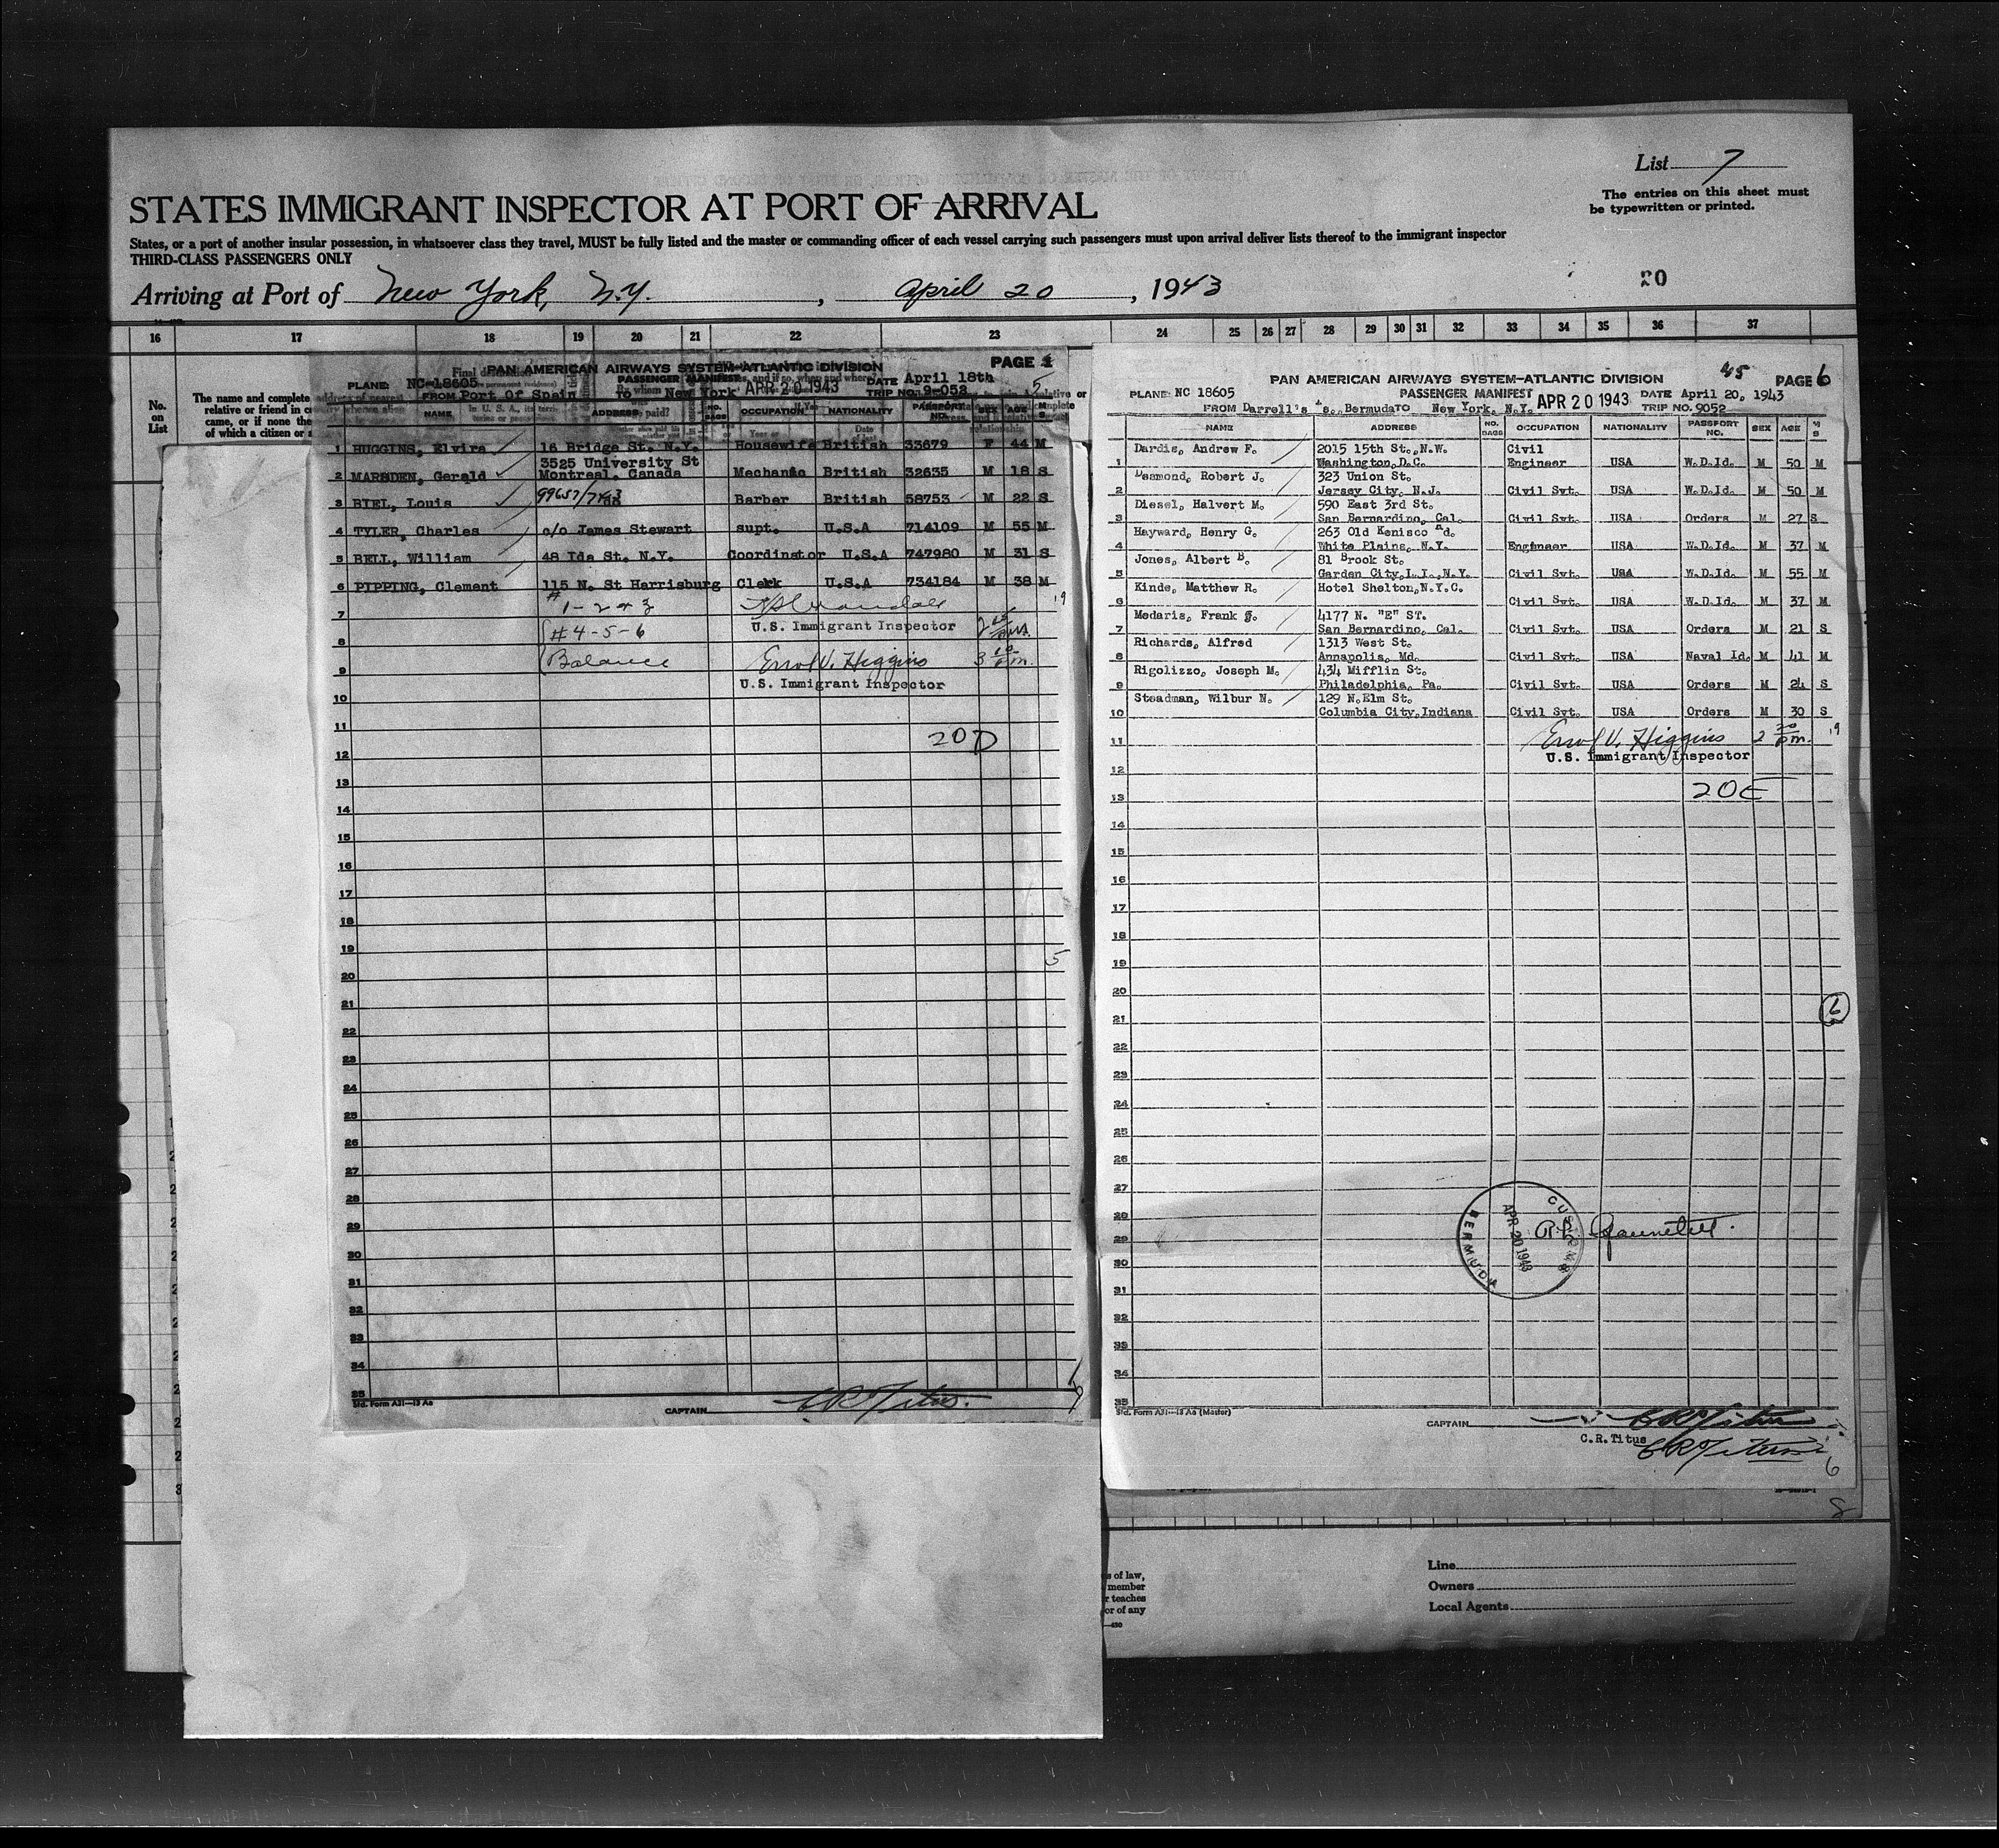 List 7
The entries on this sheet must
be typewritten or printed.
STATES IMMIGRANT INSPECTOR AT PORT OF ARRIVAL
States, or a port of another insular possession, in whatsoever class they travel, MUST be fully listed and the master or commanding officer of each vessel carrying such passengers must upon arrival deliver lists thereof to the immigrant inspector
THIRD-CLASS PASSENGERS ONLY
20
Arriving at Port of New York, N.Y., April 20, 1943
16 17 18 19 20 21 22 23 24 25 26 27 28 29 30 31 32 33 34 35 36 37
No.
on
List
The name and complete
relative or friend in
came, or if none the
of which a citizen or
PAGE
5
PAN AMERICAN AIRWAYS SYSTEM-ATLANTIC DIVISION
PLANE: NC-18605 PASSENGER MANIFEST APR 20 1943 DATE April 18th
FROM Port Of Spain TO New York TRIP NO. 9-052
NAME ADDRESS NO. BAGS OCCUPATION NATIONALITY PASSPORT NO. SEX AGE M S
1 HUGGINS, Elvira 16 Bridge St. N.Y. Housewife British 33679 F 44 M
3525 University St
2 MARSDEN, Gerald Montreal, Canada Mechanic British 32635 M 18 S
3 BIEL, Louis Barber British 58753 M 22 S
4 TYLER, Charles c/o James Stewart supt. U.S.A 714109 M 55 M
5 BELL, William 48 Ida St. N.Y. Coordinator U.S.A 747980 M 31 S
6 PIPPING, Clement 115 N. St Harrisburg Clerk U.S.A 734184 M 38 M
7 # 1-2+3
U.S. Immigrant Inspector
8 #4-5-6
9 Balance Errol V. Higgins 3 10 pm.
U.S. Immigrant Inspector
10
11
20D
12
13
14
15
16
17
18
19
5
20
21
22
23
24
25
26
27
28
29
30
31
32
33
34
35
Std. Form A31-13 Aa
CAPTAIN C R Titus.
45
PAN AMERICAN AIRWAYS SYSTEM-ATLANTIC DIVISION PAGE 6
PLANE: NC 18605 PASSENGER MANIFEST APR 20 1943 DATE April 20, 1943
FROM Darrell's Is., Bermuda TO New York, N.Y. TRIP NO. 9052
NAME ADDRESS NO. BAGS OCCUPATION NATIONALITY PASSPORT NO. SEX AGE M S
Dardis, Andrew F. 2015 15th St., N.W. Civil
1 Washington, D.C. Engineer USA W.D.Id. M 50 M
Desmond, Robert J. 323 Union St.
2 Jersey City, N.J. Civil Svt. USA W.D.Id. M 50 M
Diesel, Halvert M. 590 East 3rd St.
3 San Bernardino, Cal. Civil Svt. USA Orders M 27 S
Hayward, Henry G. 263 Old Kenisco Rd.
4 White Plains, N.Y. Engineer USA W.D.Id. M 37 M
Jones, Albert B. 81 Brook St.
5 Garden City, L.I., N.Y. Civil Svt. USA W.D.Id. M 55 M
Kinde, Matthew R. Hotel Shelton, N.Y.C.
6 Civil Svt. USA W.D.Id. M 37 M
Medaris, Frank J. 4177 N. "E" ST.
7 San Bernardino, Cal. Civil Svt. USA Orders M 21 S
Richards, Alfred 1313 West St.
8 Annapolis, Md. Civil Svt. USA Naval Id. M 41 M
Rigolizzo, Joseph M. 434 Mifflin St.
9 Philadelphia, Pa. Civil Svt. USA Orders M 24 S
Steadman, Wilbur N. 129 N. Elm St.
10 Columbia City, Indiana Civil Svt. USA Orders M 30 S
11 Errol V. Higgins 2 20 pm.
U.S. Immigrant Inspector
12
13 20E
14
15
16
17
18
19
20
21
6
22
23
24
25
26
27
28
29
30
31
32
33
34
35
CUSTOMS
APR 20 1943
BERMUDA
Std. Form A31-13 Aa (Master)
CAPTAIN C R Titus
C.R. Titus C R Titus
6
8
s of law,
member
r teaches
or of any
—430
Line
Owners
Local Agents